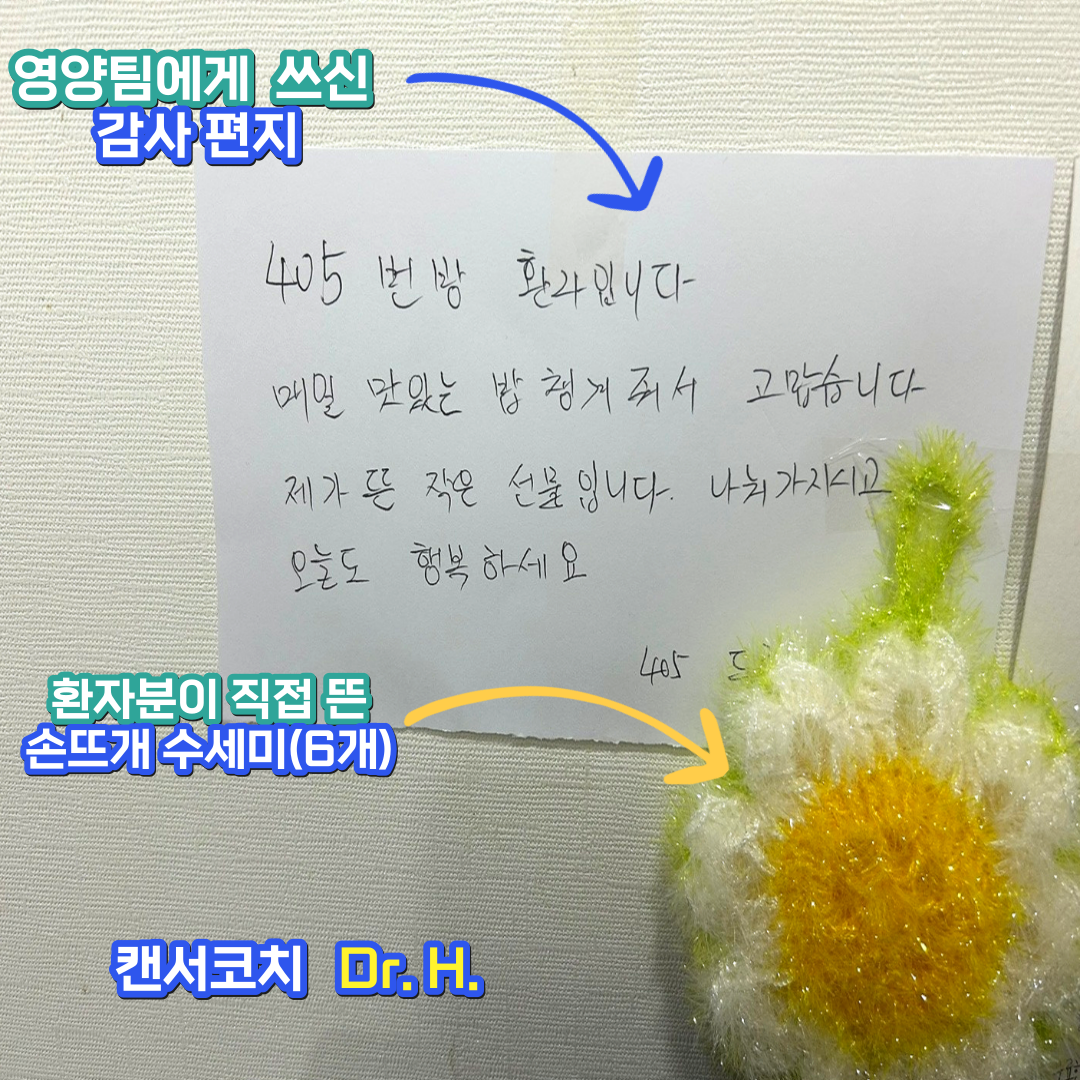 영양팀에게 쓰신
감사 편지
405 번방 환자입니다
매일 맛있는 밥 챙겨줘서 고맙습니다
제가 뜬 작은 선물입니다. 나눠가지시고
오늘도 행복하세요
405
환자분이 직접 뜬
손뜨개 수세미(6개)
캔서코치 Dr. H.